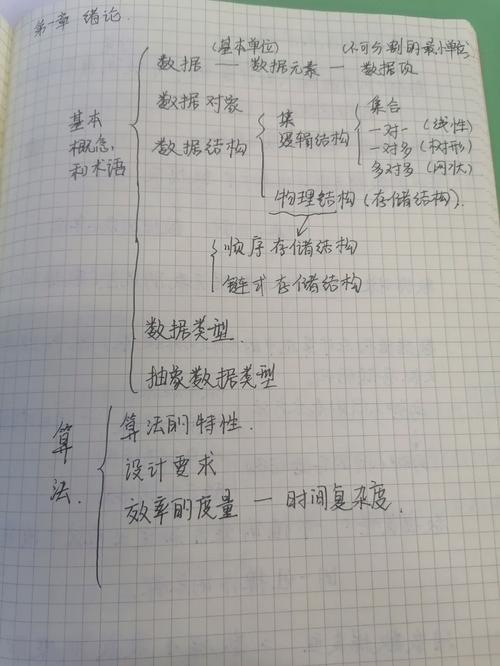 第一章 绪论.
(基本单位) (不可分割的最小单位)
数据 — 数据元素 — 数据项
数据对象
基本概念和术语
数据结构
逻辑结构
集合
一对一 (线性)
一对多 (树形)
多对多 (网状)
物理结构 (存储结构).
顺序存储结构
链式存储结构
数据类型.
抽象数据类型
算法.
算法的特性.
设计要求
效率的度量 — 时间复杂度.